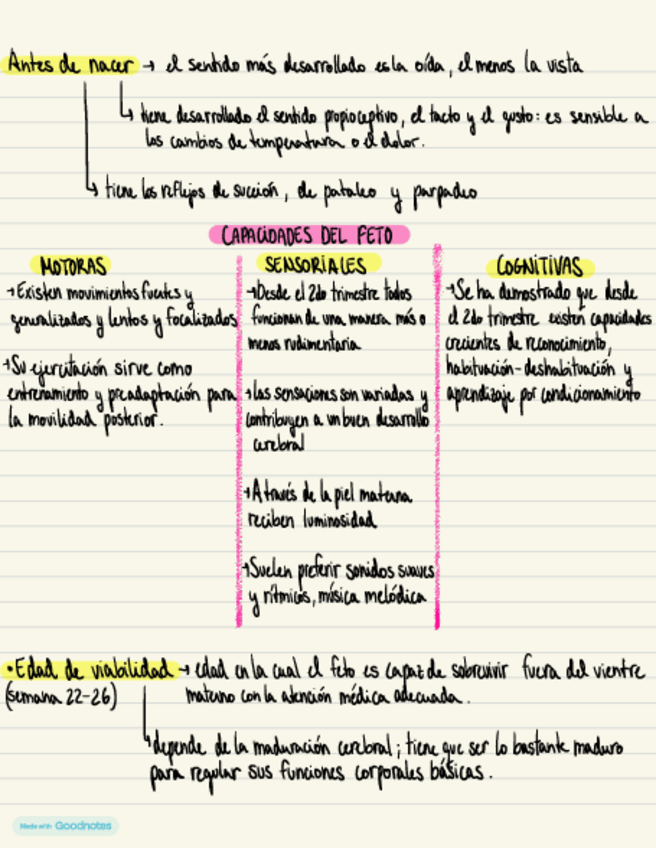 Antes de nacer → el sentido más desarrollado es la oída, el menos la vista
tiene desarrollado el sentido propioceptivo, el tacto y el gusto: es sensible a
los cambios de temperatura o el dolor.
tiene los reflejos de succión, de pataleo y parpadeo
CAPACIDADES DEL FETO
MOTORAS
→ Existen movimientos fuertes y
generalizados y lentos y focalizados
→ Su ejercitación sirve como
entrenamiento y preadaptación para
la movilidad posterior.
SENSORIALES
→ Desde el 2do trimestre todos
funcionan de una manera más o
menos rudimentaria
→ las sensaciones son variadas y
contribuyen a un buen desarrollo
cerebral
→ A través de la piel materna
reciben luminosidad
→ Suelen preferir sonidos suaves
y rítmicos, música melódica
COGNITIVAS
→ Se ha demostrado que desde
el 2do trimestre existen capacidades
crecientes de reconocimiento,
habituación-deshabituación y
aprendizaje por condicionamiento
• Edad de viabilidad → edad en la cual el feto es capaz de sobrevivir fuera del vientre
(semana 22-26) materno con la atención médica adecuada.
depende de la maduración cerebral; tiene que ser lo bastante maduro
para regular sus funciones corporales básicas.
Made with Goodnotes